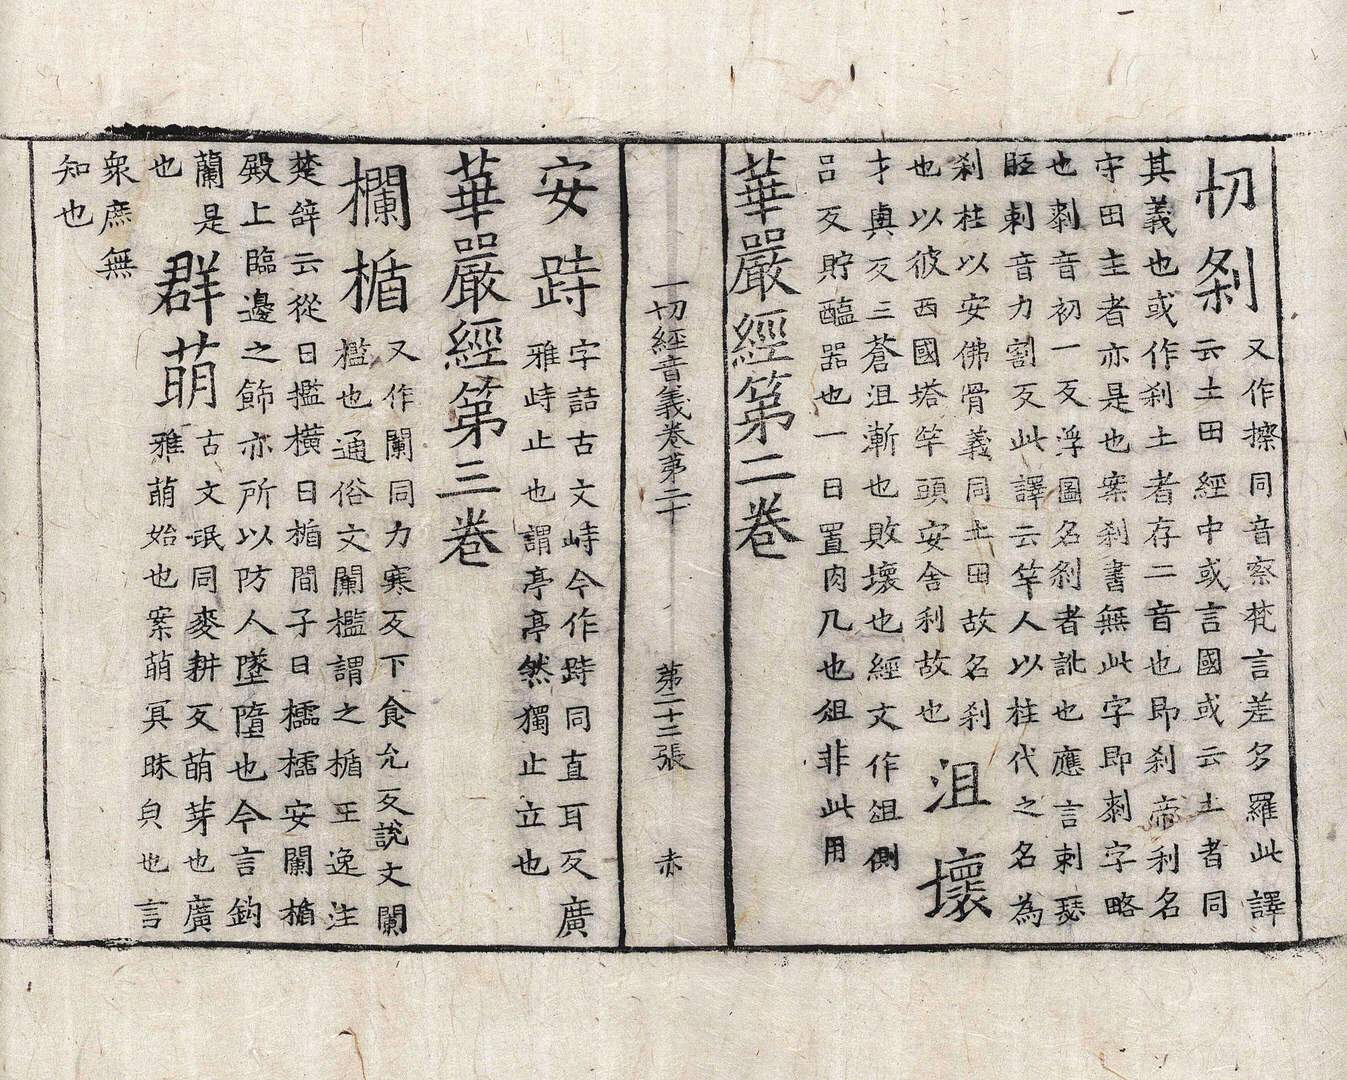 切刹
又作擦同音察梵言差多羅此譯
云土田經中或言國或云土者同
其義也或作刹土者存二音也即刹帝利名
守田主者亦是也案刹書無此字即剌字略
也剌音初一反浮圖名刹者訛也應言剌瑟
胵剌音力割反此譯云竿人以柱代之名為
刹柱以安佛骨義同土田故名刹
也以彼西國塔竿頭安舍利故也
沮壞
才與反三蒼沮漸也敗壞也經文作俎側
呂反貯醢器也一曰置肉几也俎非此用
華嚴經第二卷
一切經音義卷第二十 第二十二張 赤
安跱
字詁古文峙今作跱同直耳反廣
雅峙止也謂亭亭然獨止立也
華嚴經第三卷
欄楯
又作闌同力寒反下食允反說文闌
檻也通俗文闌檻謂之楯王逸注
楚辞云從曰檻橫曰楯間子曰櫺櫺安闌楯
殿上臨邊之飾亦所以防人墜墮也今言鈎
蘭是
也
群萌
古文氓同麥耕反萌芽也廣
雅萌始也案萌冥昧皃也言
衆庶無
知也